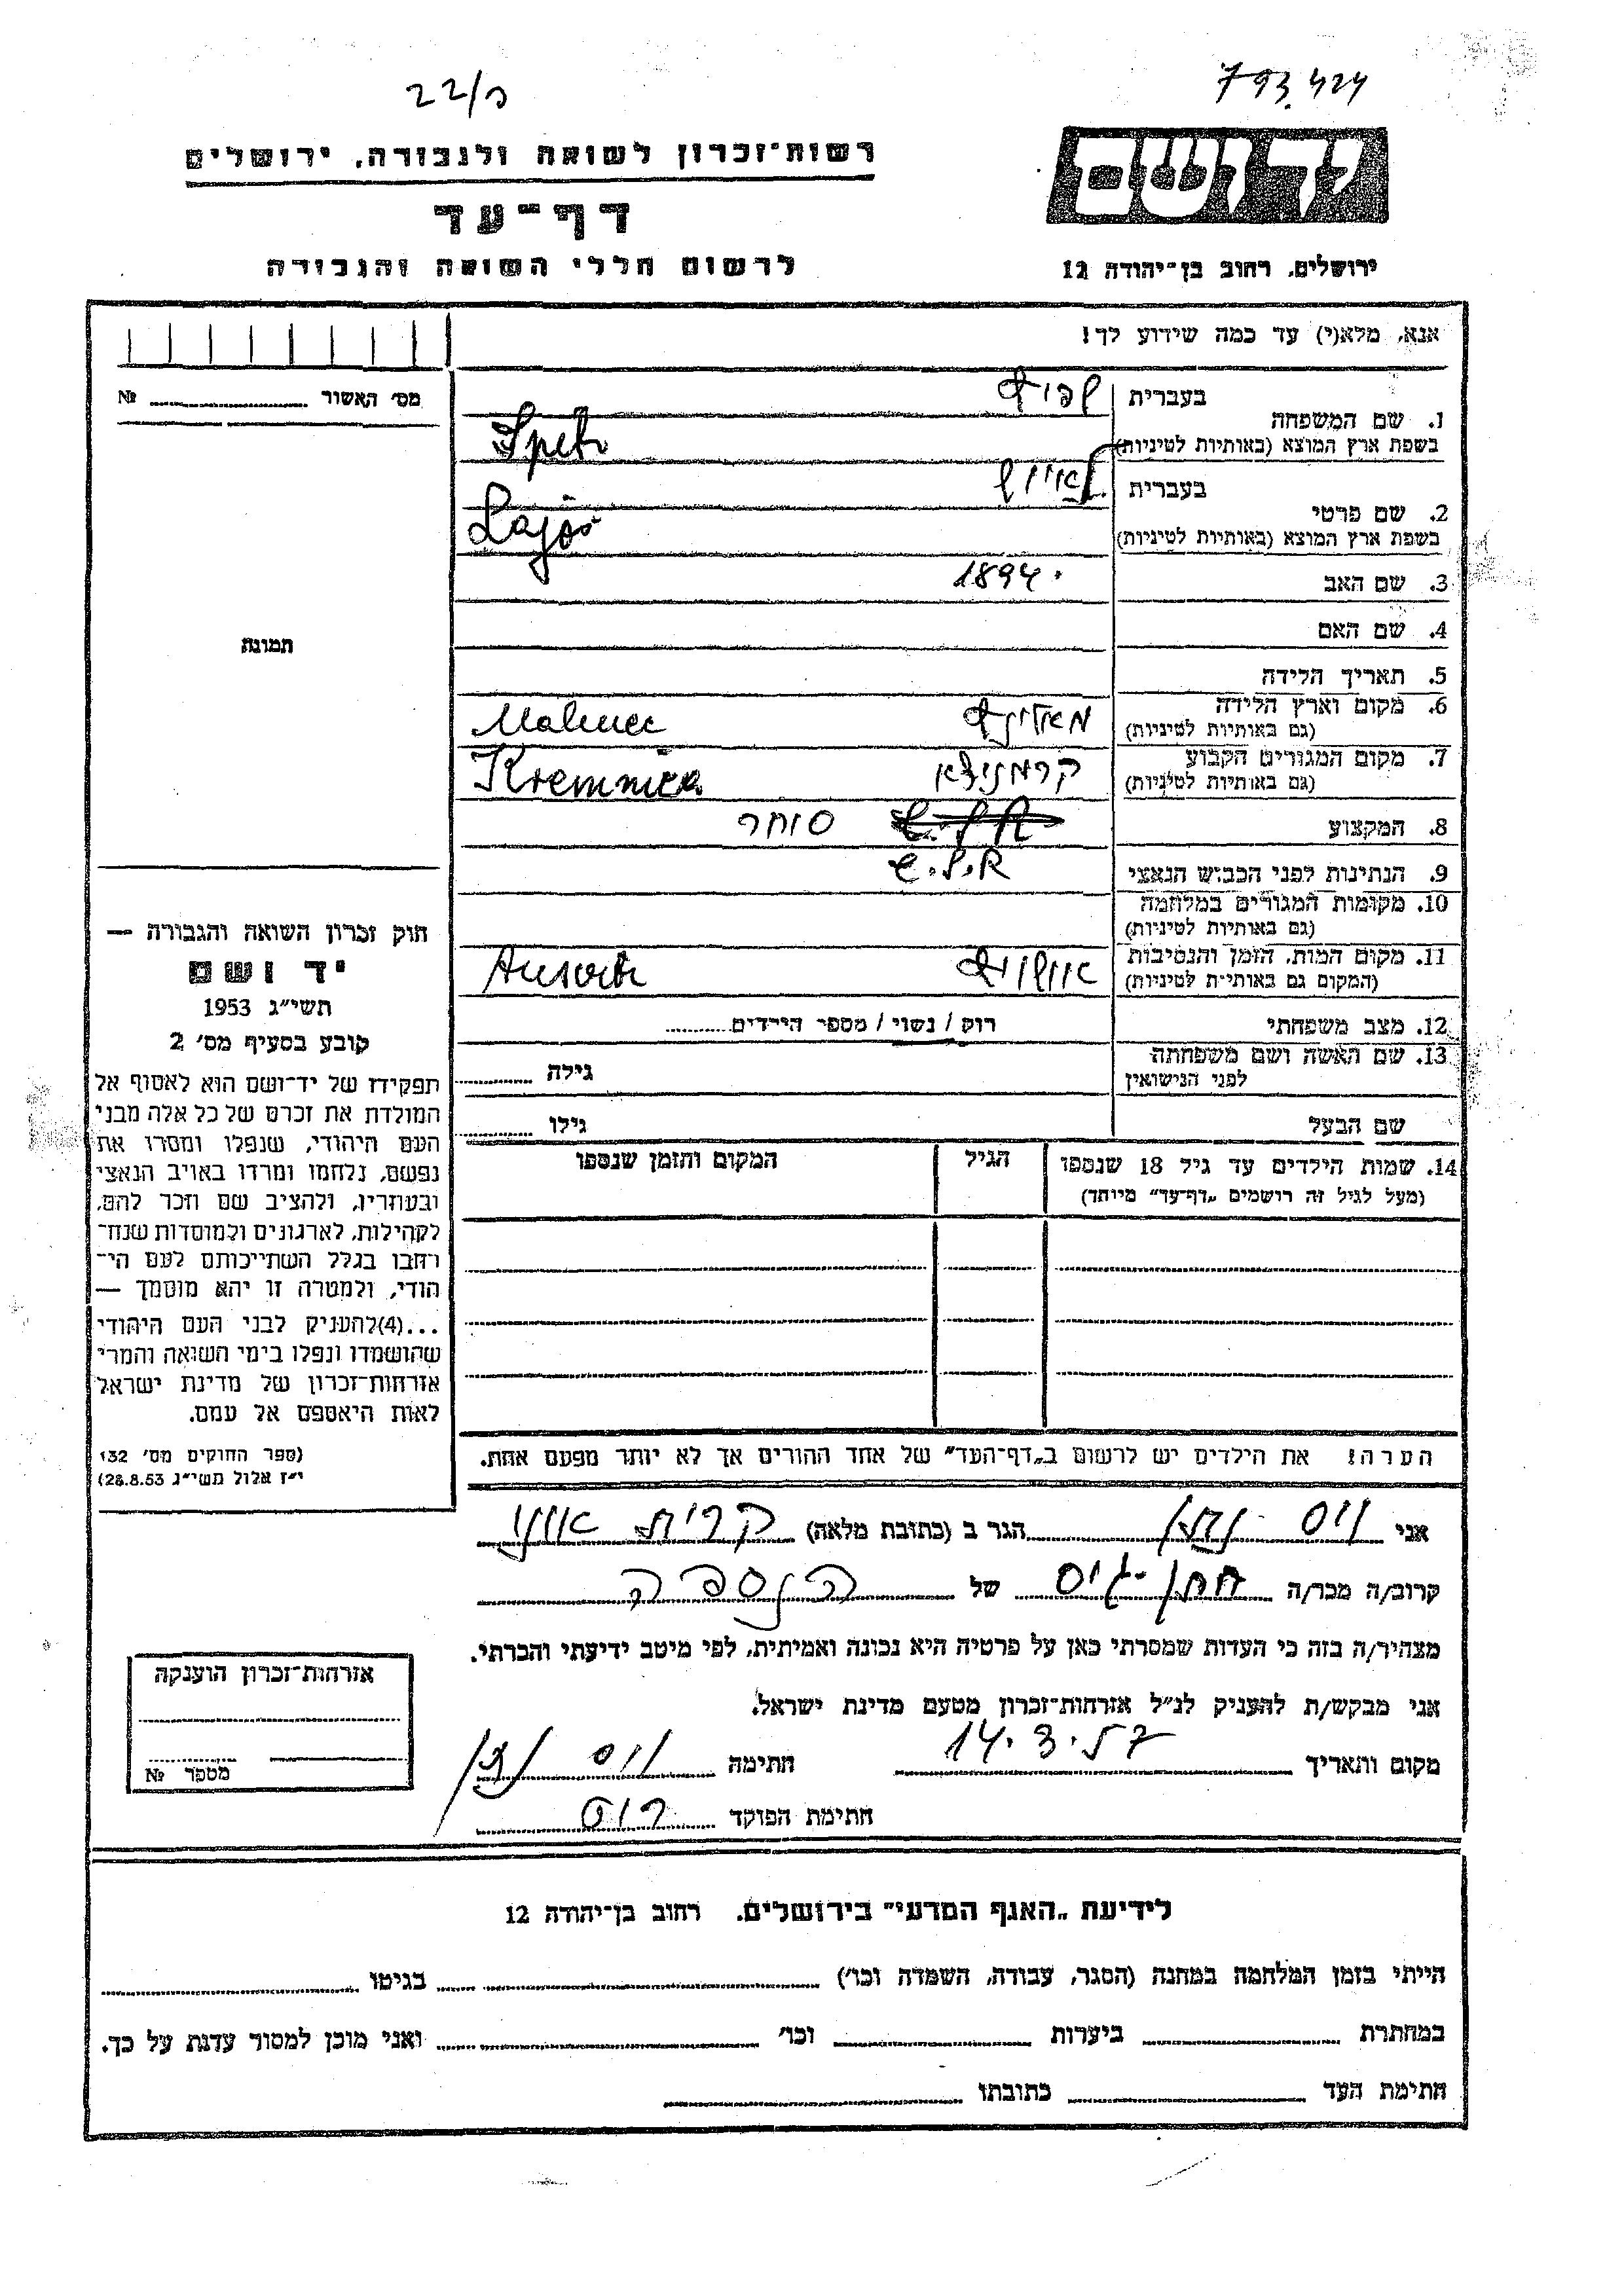 22/ס
793.424
רשות־זכרון לשואה ולגבורה, ירושלים
דף־עד
לרשום חללי השואה והגבורה
יד ושם
ירושלים, רחוב בן־יהודה 12
אנא, מלא(י) עד כמה שידוע לך!
מס׳ האשור № 
1. שם המשפחה
בעברית
בשפת ארץ המוצא (באותיות לטיניות)
2. שם פרטי
בעברית
לאיוש
בשפת ארץ המוצא (באותיות לטיניות)
Lajos
3. שם האב
1894
4. שם האם
5. תאריך הלידה
6. מקום וארץ הלידה
(גם באותיות לטיניות)
7. מקום המגורים הקבוע
(גם באותיות לטיניות)
קרמניצא Kremnica
8. המקצוע
סוחר
9. הנתינות לפני הכבוש הנאצי
10. מקומות המגורים במלחמה
(גם באותיות לטיניות)
11. מקום המות, הזמן והנסיבות
(המקום גם באותיות לטיניות)
אושויץ
12. מצב משפחתי
רווק / נשוי / מספר הילדים
13. שם האשה ושם משפחתה
לפני הנישואין
גילה
שם הבעל
גילו
14. שמות הילדים עד גיל 18 שנספו
(מעל לגיל זה רושמים „דף־עד” מיוחד)
הגיל
המקום והזמן שנספו
תמונה
חוק זכרון השואה והגבורה —
יד ושם
תשי״ג 1953
קובע בסעיף מס׳ 2
תפקידו של יד־ושם הוא לאסוף אל
המולדת את זכרם של כל אלה מבני
העם היהודי, שנפלו ומסרו את
נפשם, נלחמו ומרדו באויב הנאצי
ובעוזריו, ולהציב שם וזכר להם,
לקהילות, לארגונים ולמוסדות שנח־
רבו בגלל השתייכותם לעם הי־
הודי, ולמטרה זו יהא מוסמך —
...(4)להעניק לבני העם היהודי
שהושמדו ונפלו בימי השואה והמרי
אזרחות־זכרון של מדינת ישראל
לאות היאספם אל עמם.
(ספר החוקים מס׳ 132
י״ז אלול תשי״ג 28.8.53)
הערה! את הילדים יש לרשום ב„דף־העד” של אחד ההורים אך לא יותר מפעם אחת.
אני וייס הגר ב (כתובת מלאה) קרית אונו
קרוב/ה מכר/ה של הנספה
מצהיר/ה בזה כי העדות שמסרתי כאן על פרטיה היא נכונה ואמיתית, לפי מיטב ידיעתי והכרתי.
אני מבקש/ת להעניק לנ״ל אזרחות־זכרון מטעם מדינת ישראל.
מקום ותאריך 14.3.57 חתימה
חתימת הפוקד
אזרחות־זכרון הוענקה
מספר №
לידיעת „האגף המדעי” בירושלים, רחוב בן־יהודה 12
הייתי בזמן המלחמה במחנה (הסגר, עבודה, השמדה וכו׳) בגיטו
במחתרת ביערות וכו׳ ואני מוכן למסור עדות על כך.
חתימת העד כתובתו